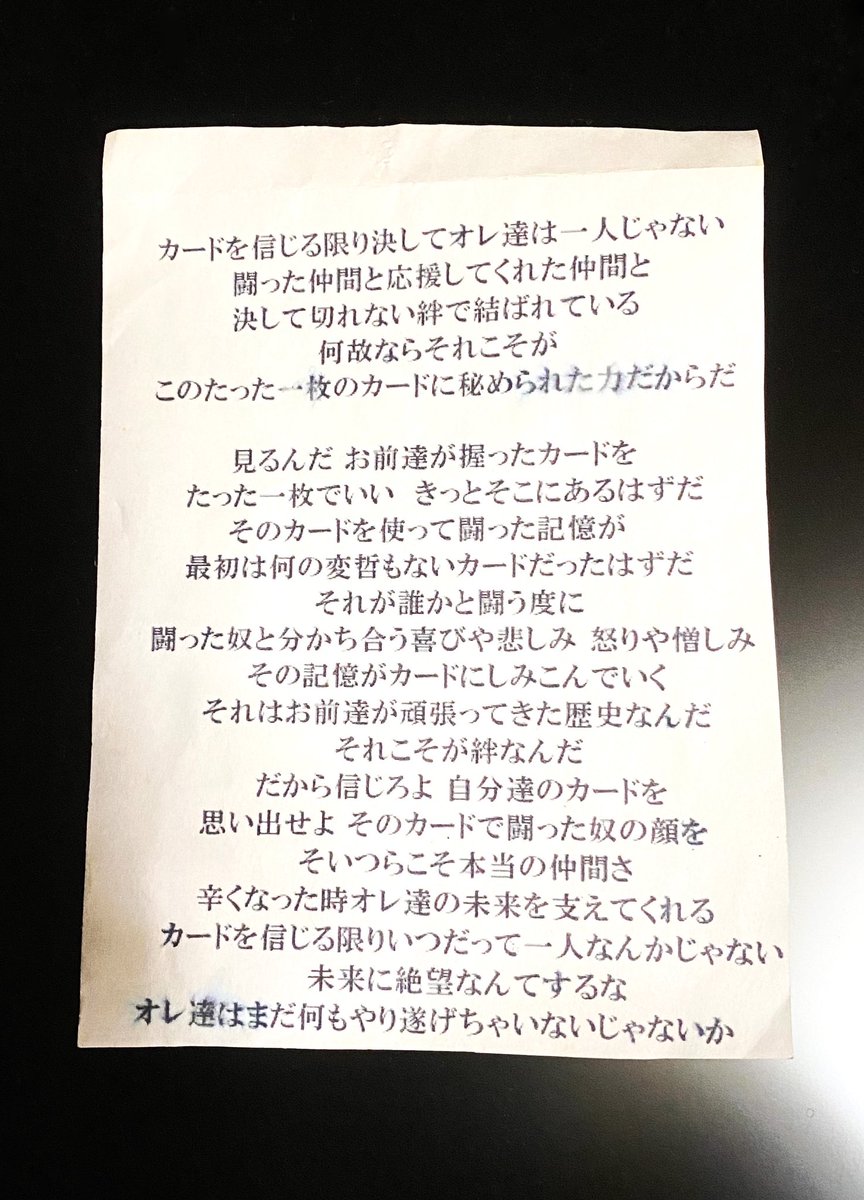 カードを信じる限り決してオレ達は一人じゃない
闘った仲間と応援してくれた仲間と
決して切れない絆で結ばれている
何故ならそれこそが
このたった一枚のカードに秘められた力だからだ
見るんだ お前達が握ったカードを
たった一枚でいい きっとそこにあるはずだ
そのカードを使って闘った記憶が
最初は何の変哲もないカードだったはずだ
それが誰かと闘う度に
闘った奴と分かち合う喜びや悲しみ 怒りや憎しみ
その記憶がカードにしみこんでいく
それはお前達が頑張ってきた歴史なんだ
それこそが絆なんだ
だから信じろよ 自分達のカードを
思い出せよ そのカードで闘った奴の顔を
そいつらこそ本当の仲間さ
辛くなった時オレ達の未来を支えてくれる
カードを信じる限りいつだって一人なんかじゃない
未来に絶望なんてするな
オレ達はまだ何もやり遂げちゃいないじゃないか